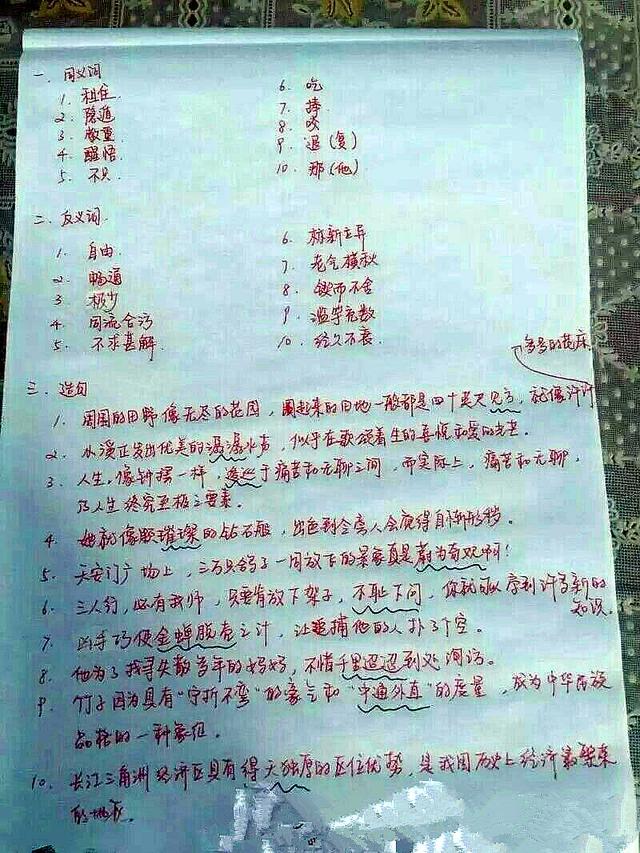 一、同义词
1. 租住
2. 隐遁
3. 敬重
4. 醒悟
5. 不只
6. 吃
7. 捧
8. 咬
9. 退(复)
10. 那(他)
二、反义词
1. 自由
2. 畅通
3. 极少
4. 同流合污
5. 不求甚解
6. 标新立异
7. 老气横秋
8. 锲而不舍
9. 滥竽充数
10. 经久不衰
三、造句
1. 周围的田野像无尽的花园,圈起来的田地一般都是四十英尺见方,就像许许
多多的花床
2. 小溪正发出优美的潺潺水声,似乎在歌颂着生的喜悦和爱的光芒。
3. 人生,像钟摆一样,逡巡于痛苦和无聊之间,而实际上,痛苦和无聊,
乃人生终究至极之要素。
4. 她就像般璀璨的钻石般,出色到令旁人会觉得自惭形秽。
5. 天安门广场上,三万只鸽子一同放飞的景象真是蔚为奇观啊!
6. 三人行,必有我师,只要肯放下架子,不耻下问,你就可以学到许多新的
知识。
7. 凶手巧使金蝉脱壳之计,让追捕他的人扑了个空。
8. 他为了找寻失散多年的妈妈,不惜千里迢迢到处询访。
9. 竹子因为具有"宁折不弯"的豪气和"中通外直"的度量,成为中华民族
品格的一种象征。
10. 长江三角洲经济区具有得天独厚的区位优势,是我国历史上经济最繁荣
的地区。